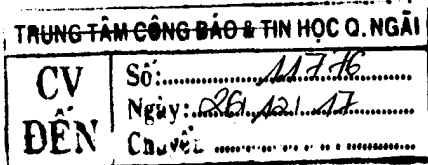 TRUNG TÂM CÔNG BÁO & TIN HỌC Q.NGÃI
CV ĐẾN
Số:.....11776.....
Ngày:..26/12/17.....
Chuyển.....